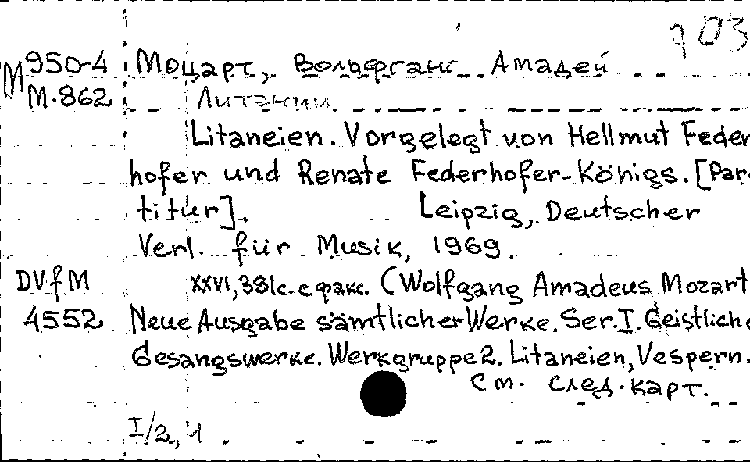 903
М950-4 Моцарт, Вольфганг Амадей
М-862 Литании
Litaneien. Vorgelegt von Hellmut Feder
hofer und Renate Federhofer-Königs. [Par-
titur]. Leipzig, Deutscher
Verl. für Musik, 1969.
DVfM XXVI, 381c. с факс. (Wolfgang Amadeus Mozart
4552 Neue Ausgabe sämtlicher Werke. Ser. I. Geistliche
Gesangswerke. Werkgruppe 2. Litaneien, Vespern.
См. след. карт.
I/2,